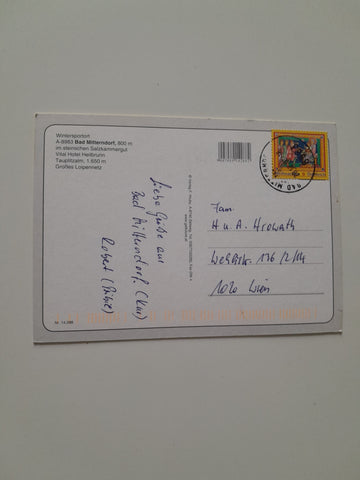 Wintersportort
A-8983 Bad Mitterndorf, 800 m
im steirischen Salzkammergut
Vital Hotel Heilbrunn
Tauplitzalm, 1.650 m
Großes Loipennetz
Liebe Grüße aus
Bad Mitterndorf. (Kur)
Robert
BAD MITTERNDORF
Fam.
H. u. A. Horwath
136/2/14
1020 Wien
Nr. 14.289